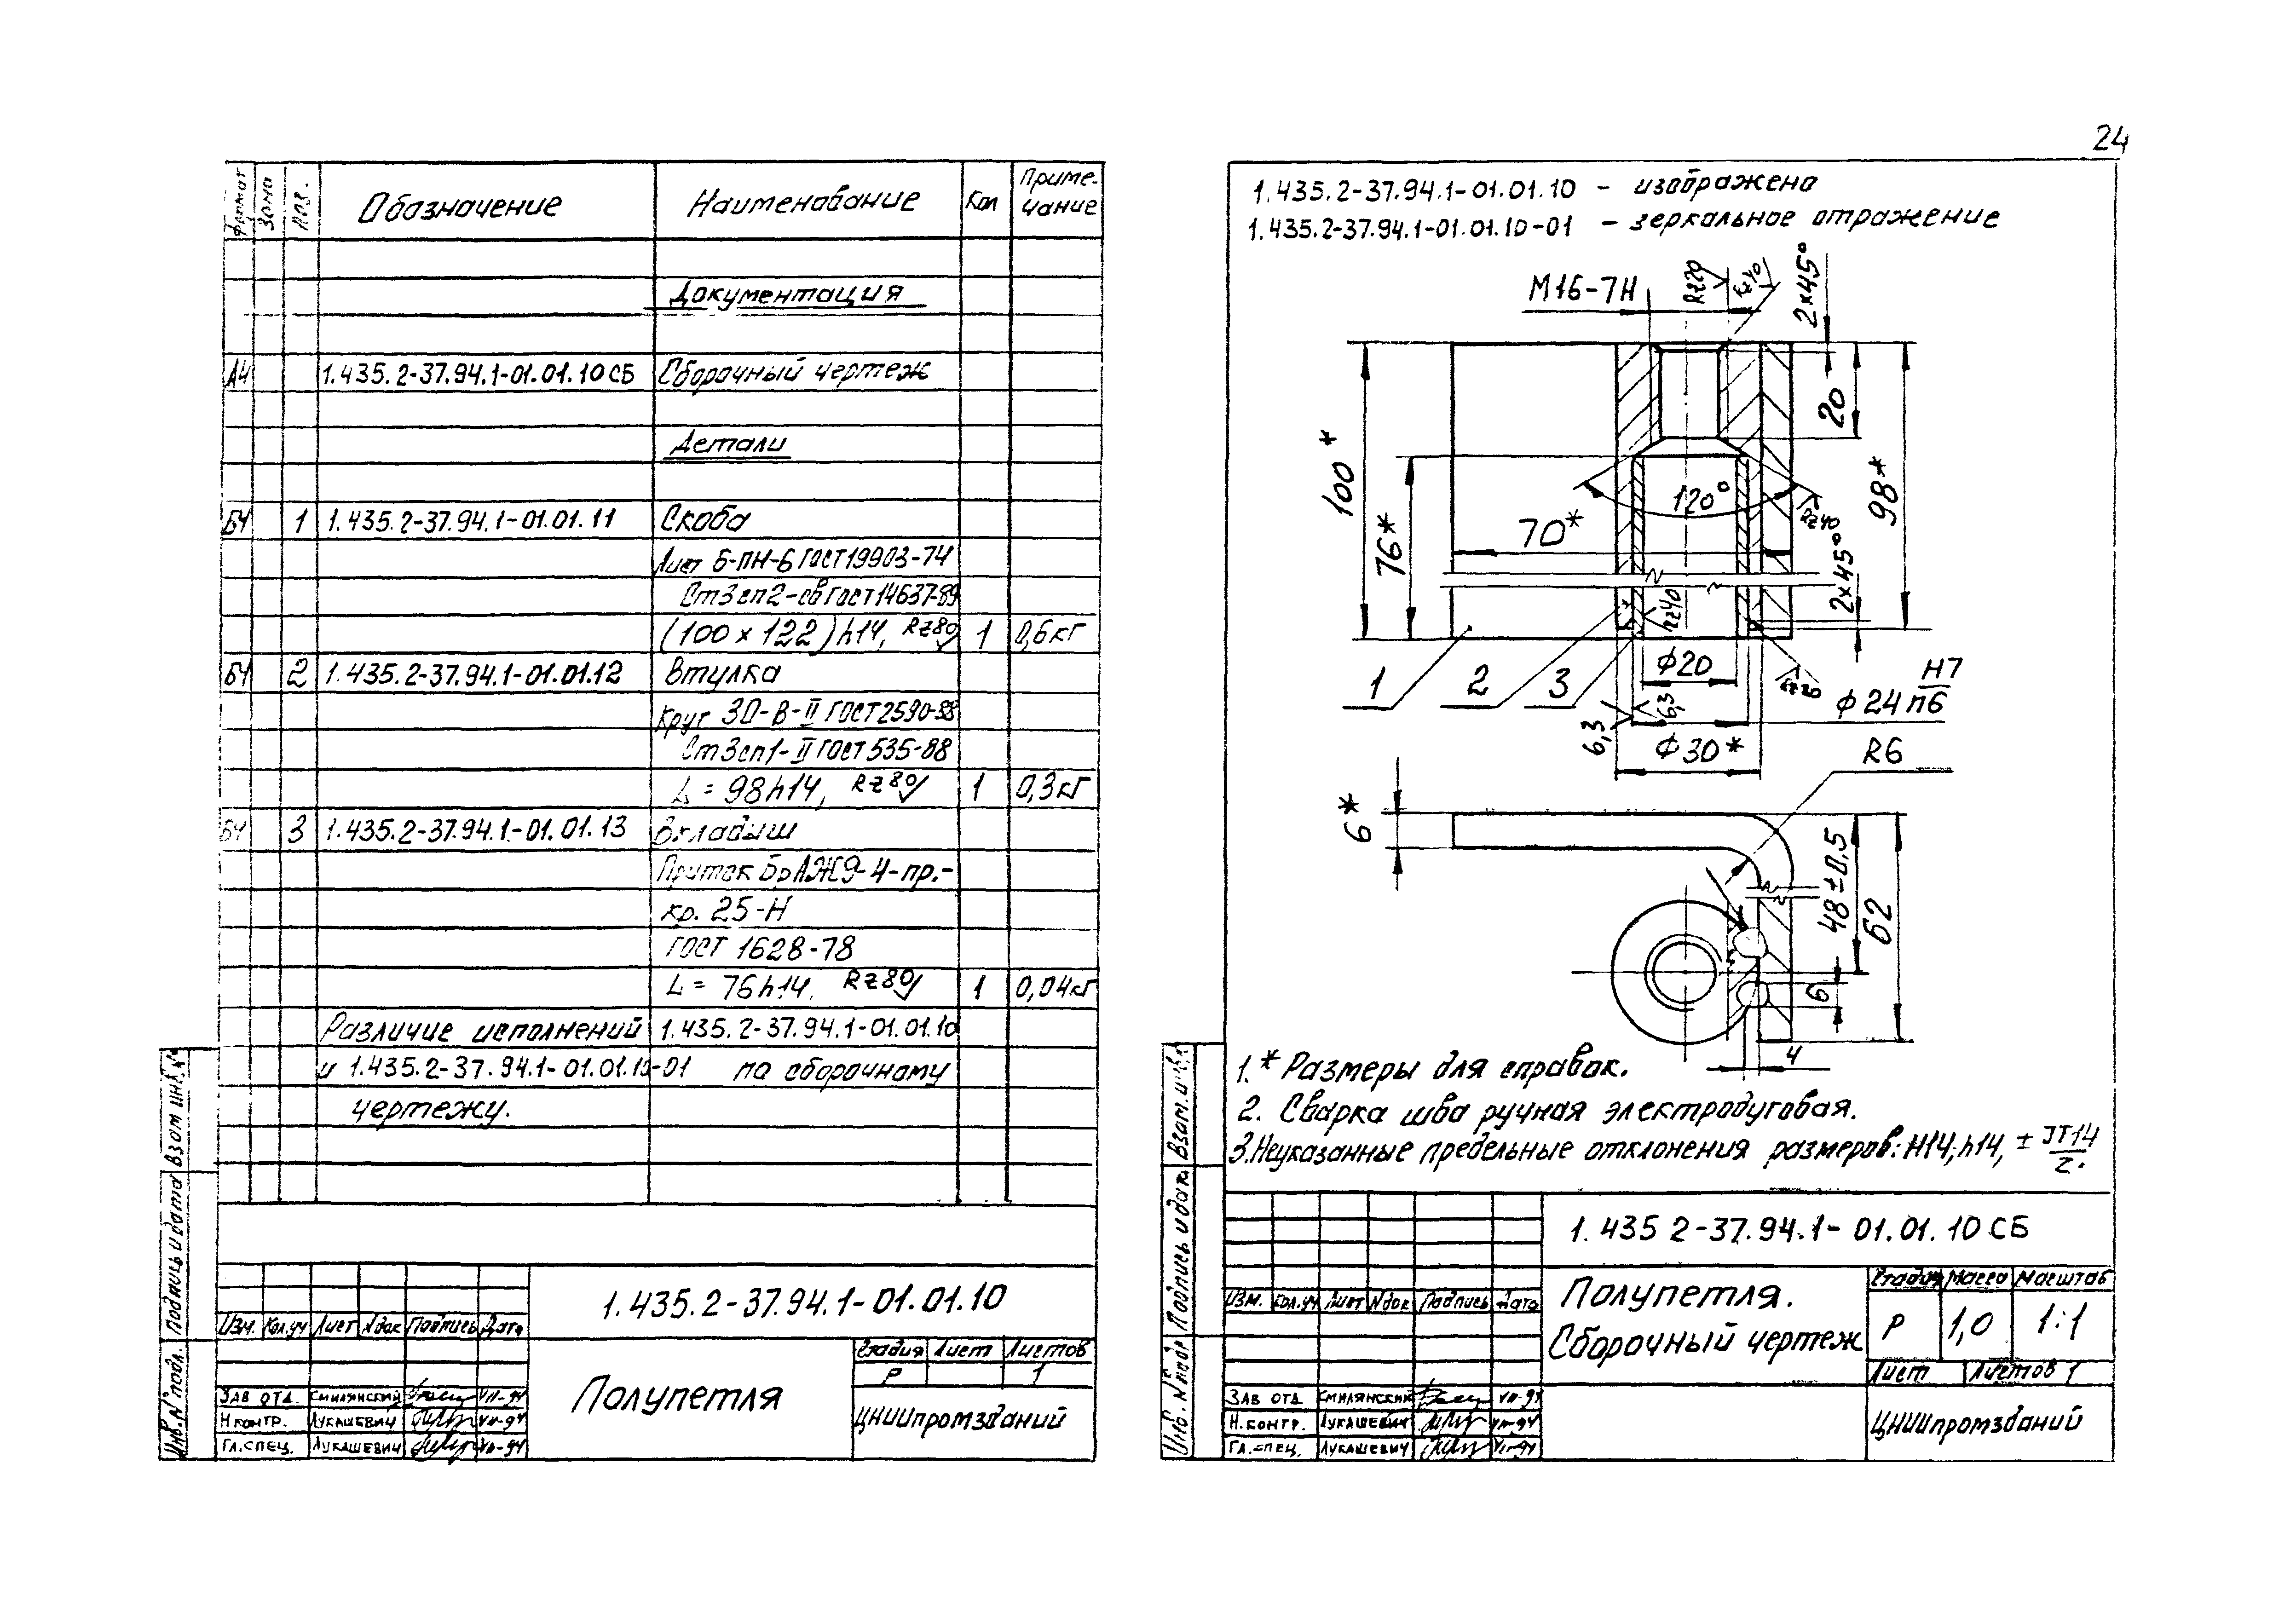 24
Формат Зона Поз. Обозначение Наименование Кол Приме-
чание
Документация
А4 1.435.2-37.94.1-01.01.10 СБ Сборочный чертеж
Детали
БЧ 1 1.435.2-37.94.1-01.01.11 Скоба
Лист Б-ПН-6 ГОСТ 19903-74
Ст3сп2-св ГОСТ 14637-89
(100 х 122) h14, Rz80 1 0,6кг
БЧ 2 1.435.2-37.94.1-01.01.12 Втулка
Круг 30-В-II ГОСТ 2590-88
Ст3сп1-II ГОСТ 535-88
L = 98h14, Rz80 1 0,3кг
БЧ 3 1.435.2-37.94.1-01.01.13 Вкладыш
Пруток БрАЖ9-4-пр.-
кр. 25-Н
ГОСТ 1628-78
L = 76h14. Rz80 1 0,04кг
Различие исполнений 1.435.2-37.94.1-01.01.10
и 1.435.2-37.94.1-01.01.10-01 по сборочному
чертежу.
Взам инв. №
Подпись и дата
Инв. № подл.
1.435.2-37.94.1-01.01.10
Изм. Кол.уч Лист №док Подпись Дата
Полупетля
Стадия Лист Листов
Р 1
ЦНИИпромзданий
Зав отд. Смилянский VII-94
Н.контр. Лукашевич VII-94
Гл.спец. Лукашевич VII-94
1.435.2-37.94.1-01.01.10 - изображено
1.435.2-37.94.1-01.01.10-01 - зеркальное отражение
М16-7Н
Rz20
Rz40
2х45°
20
98*
100*
76*
70*
120°
Rz40
2х45°
Rz40
1
2
3
ф20
Rz20
ф24 Н7
п6
6,3
6,3
ф30*
R6
6*
48±0,5
62
6
4
1.* Размеры для справок.
2. Сварка шва ручная электродуговая.
3.Неуказанные предельные отклонения размеров: Н14; h14, ± IT14
2.
Взам. инв. №
Подпись и дата
Инв. № подл
1.435 2-37.94.1-01.01.10 СБ
Изм. Кол.уч Лист №док Подпись Дата
Полупетля.
Сборочный чертеж
Стадия Масса Масштаб
Р 1,0 1:1
Лист Листов 1
ЦНИИпромзданий
Зав отд Смилянский VII-94
Н.контр. Лукашевич VII-94
Гл.спец. Лукашевич VII-94